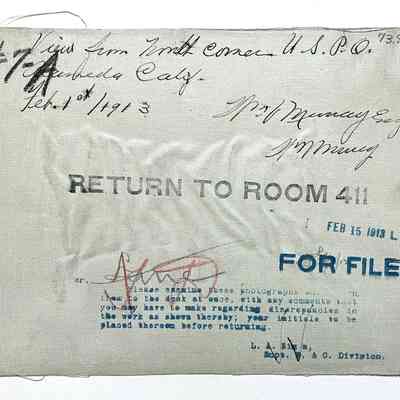 #7-A
View from North corner U.S.P.O. 73.9
Alameda Calif.
Feb. 1st/1913
Wm J Murray Esq
RETURN TO ROOM 411
FEB 15 1913 L
FOR FILE
Mr.
Please examine these photographs and return
them to the desk at once, with any comments that
you may have to make regarding discrepancies in
the work as shown thereby; your initials to be
placed thereon before returning.
L. A. Simon,
Supt. D. & C. Division.